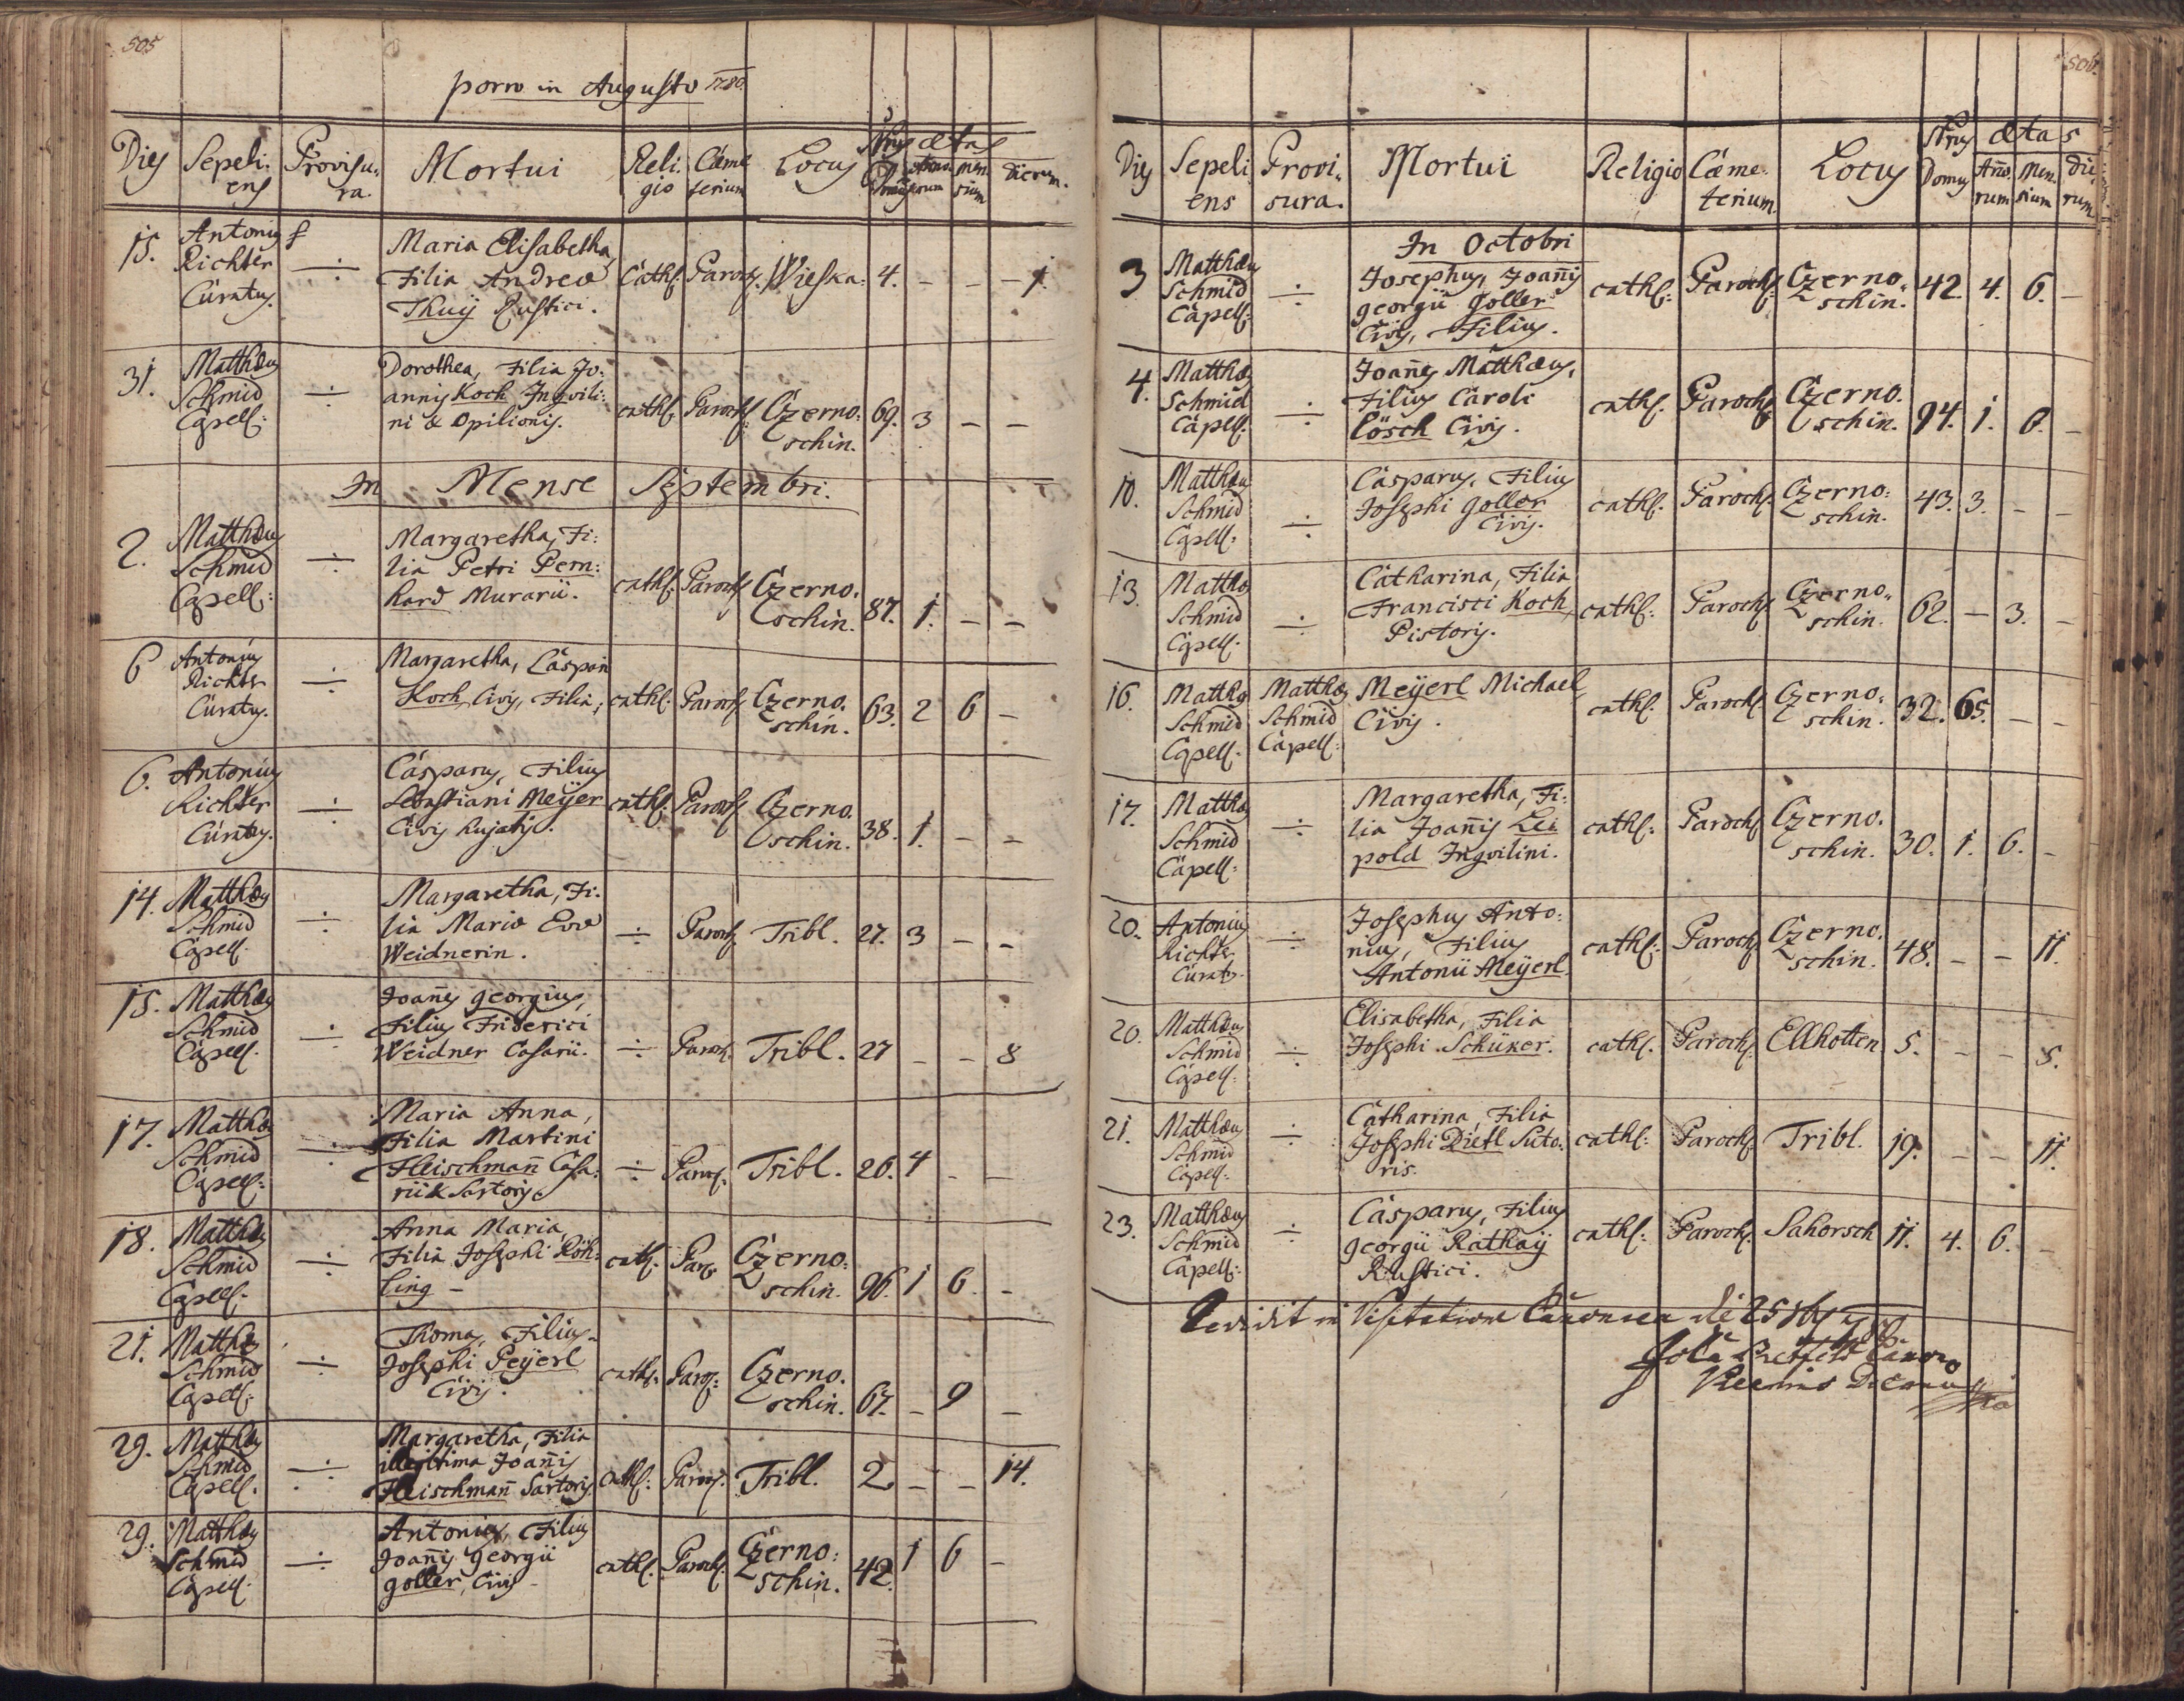 505
porro in Augusto 1780.
Dies Sepeliens Provisura. Mortui Religio Cæmeterium Locus Nrus Ætas Annorum Mensium Dierum.
15. Antonius Richter Curatus. ÷ Maria Elisabetha, Filia Andreæ Thuÿ Rustici. Cath: Paroch: Wieska. 4. – – 1.
31. Matthæus Schmid Capell: ÷ Dorothea, Filia Joannis Koch Inqvilini & Opilionis. cath: Paroch: Czernoschin. 69. 3 – –
In Mense Septembri.
2. Matthæus Schmid Capell: ÷ Margaretha, Filia Petri Pernhard Murarii. cath: Paroch: Czernoschin. 87. 1. – –
6 Antonius Richter Curatus. ÷ Margaretha, Caspari Koch Civis, Filia, cath: Paroch: Czernoschin. 63. 2 6 –
6. Antonius Richter Curatus. ÷ Casparus, Filius Sebastiani Meÿer Civis hujatis. cath: Paroch: Czernoschin. 38. 1. – –
14. Matthæus Schmid Capell. ÷ Margaretha, Filia Mariæ Evæ Weidnerin. ÷ Paroch: Tribl. 27. 3 – –
15. Matthæus Schmid Capell. ÷ Joannes Georgius, Filius Friderici Weidner Casarii. ÷ Paroch. Tribl. 27 – – 8
17. Matthæus Schmid Capell: ÷ Maria Anna, Filia Martini Fleischmañ Casarii & Sartoris. ÷ Paroch. Tribl. 26. 4 – –
18. Matthæus Schmid Capell. ÷ Anna Maria, Filia Josephi Röhling – cath: Paroch Czernoschin. 96. 1 6. –
21. Matthæus Schmid Capell: ÷ Thomas, Filius Josephi Peÿerl Civis. cath: Paroch: Czernoschin. 67. – 9 –
29. Matthæus Schmid Capell. ÷ Margaretha, Filia illegitima Joañis Fleischmañ Sartoris cath: Paroch. Tribl. 2 – – 14.
29. Matthæus Schmid Capell. ÷ Antonius, Filius Joañis Georgii Goller, Civis – cath: Paroch. Czernoschin. 42. 1 6 –
506.
Dies Sepeliens Provisura. Mortui Religio Cæmeterium. Locus Nrus Domus Ætas Año. rum Mensium Dierum
In Octobri
3 Matthæus Schmid Capell: ÷ Josephus, Joañis Georgii Goller Civis, Filius. cath: Paroch: Czernoschin. 42. 4. 6. –
4. Matthæus Schmid Capell. ÷ Joañes Matthæus, Filius Caroli Lösch Civis. cath: Paroch: Czernoschin. 94. 1. 6. –
10. Matthæus Schmid Capell: ÷ Casparus, Filius Josephi Goller Civis. cath: Paroch: Czernoschin. 43. 3. – –
13. Matthæus Schmid Capell. ÷ Catharina, Filia Francisci Koch Pistoris. cath: Paroch: Czernoschin. 62. – 3. –
16. Matthæus Schmid Capell. Matthæus Schmid Capell: Meÿerl Michael, Civis. cath: Paroch: Czernoschin. 32. 65. – –
17. Matthæus Schmid Capell: ÷ Margaretha, Filia Joañis Leipold Inqvilini. cath: Paroch: Czernoschin. 30. 1. 6. –
20. Antonius Richter Curatus. ÷ Josephus Antonius, Filius Antonii Meÿerl. cath: Paroch: Czernoschin. 48. – – 11.
20. Matthæus Schmid Capell: ÷ Elisabetha, Filia Josephi Schüker. cath: Paroch: Ellhotten 5. – – 5.
21. Matthæus Schmid Capell: ÷ Catharina, Filia Josephi Dietl Sutoris. cath: Paroch: Tribl. 19. – – 11.
23. Matthæus Schmid Capell: ÷ Casparus, Filius Georgii Rathaÿ Rustici. cath: Paroch: Sahorsch 11. 4. 6. –
in Visitatione Canonica 25